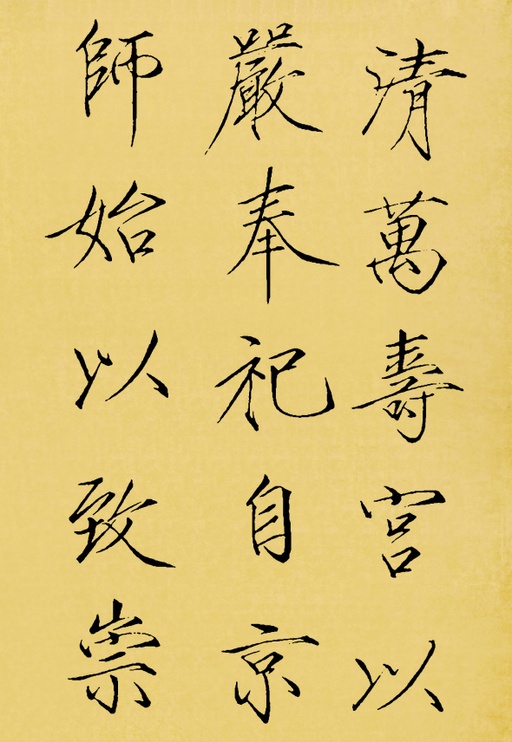 清萬壽宮以
嚴奉祀自京
師始以致崇